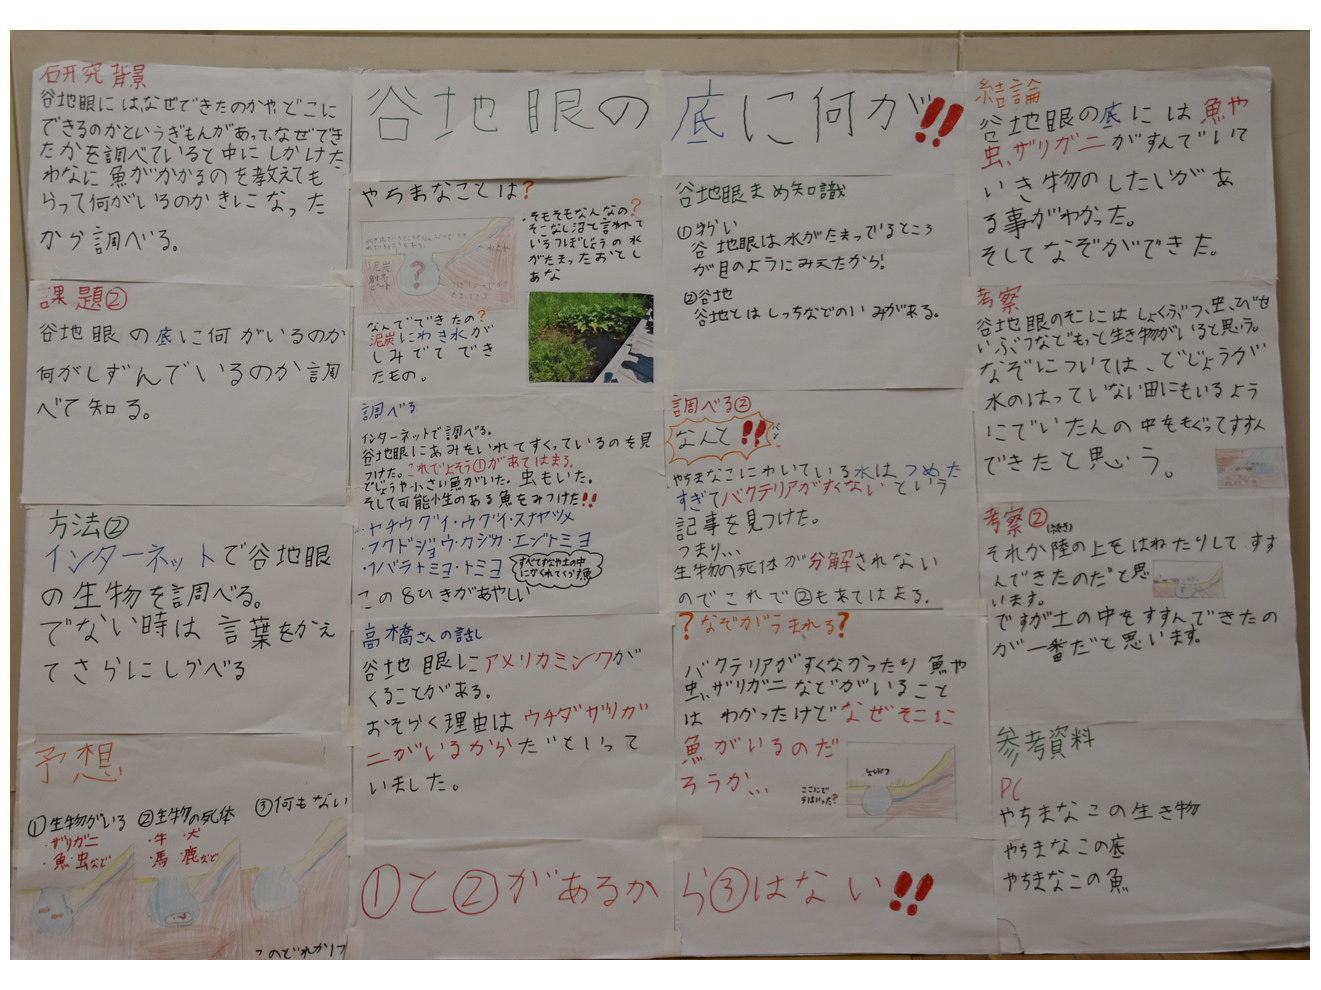 谷地眼の底に何が!!
研究背景
谷地眼にはなぜできたのかやどこに
できるのかというぎもんがあって、なぜでき
たかを調べていると中にしかけた
わなに魚がかかるのを教えても
らって何がいるのかきになった
から調べる。
課題②
谷地眼の底に何がいるのか
何がしずんでいるのか調
べて知る。
方法②
インターネットで谷地眼
の生物を調べる。
でない時は言葉をかえ
てさらにしらべる
予想
①生物がいる
・ザリガニ
・魚・虫など
②生物の死体
・牛・犬
・馬・鹿など
③何もない
このどれかり
やちまなことは?
・そもそもなんなの?
そこなし沼と言われて
いるつぼじょうの水
がたまったおとし
あな
?
なんでできたの?
泥炭にわき水が
しみでてでき
たもの。
調べる
インターネットで調べる。
谷地眼にあみをいれてすくっているのを見
つけた。これでよそう①があてはまる。
どじょうや小さい魚がいた。虫もいた。
そして可能性のある魚をみつけた!!
・ヤチウグイ・ウグイ・スナヤツメ
・フクドジョウ・カジカ・エゾトミヨ
・イバラトミヨ・トミヨ
すべてすなや土の中
にかくれてくらす魚
この8ひきがあやしい
高橋さんの話し
谷地眼にアメリカミンクが
くることがある。
おそらく理由はウチダザリガ
ニがいるからだといって
いました。
谷地眼まめ知識
①めずらい
谷地眼は水がたまっているところ
が目のようにみえたから!
②谷地
谷地とはしっちなどのいみがある。
調べる②
なんと!!
やちまなこにわいている水はつめた
すぎてバクテリアがすくないという
記事を見つけた。
つまり…
生物の死体が分解されない
のでこれで②もあてはまる。
?なぞがうまれる?
バクテリアがすくなかったり魚や
虫、ザリガニなどがいること
はわかったけどなぜそこに
魚がいるのだ
ろうか…
①と②があるから③はない!!
結論
谷地眼の底には魚や
虫、ザリガニがすんでいて
いき物のしたいがあ
る事がわかった。
そしてなぞができた。
考察
谷地眼のそこにはしょくぶつ、虫、びせ
いぶつなどもっと生き物がいると思う。
なぞについては、どじょうが
水のはっていない田にもいるよう
にでいたんの中をもぐってすすん
できたと思う。
考察②(続き)
それか陸の上をはねたりしてすす
んできたのだと思
います。
ですが土の中をすすんできたの
が一番だと思います。
参考資料
PC
やちまなこの生き物
やちまなこの底
やちまなこの魚